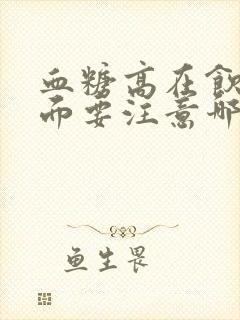 血糖高在飲
而要注意哪
鱼生畏